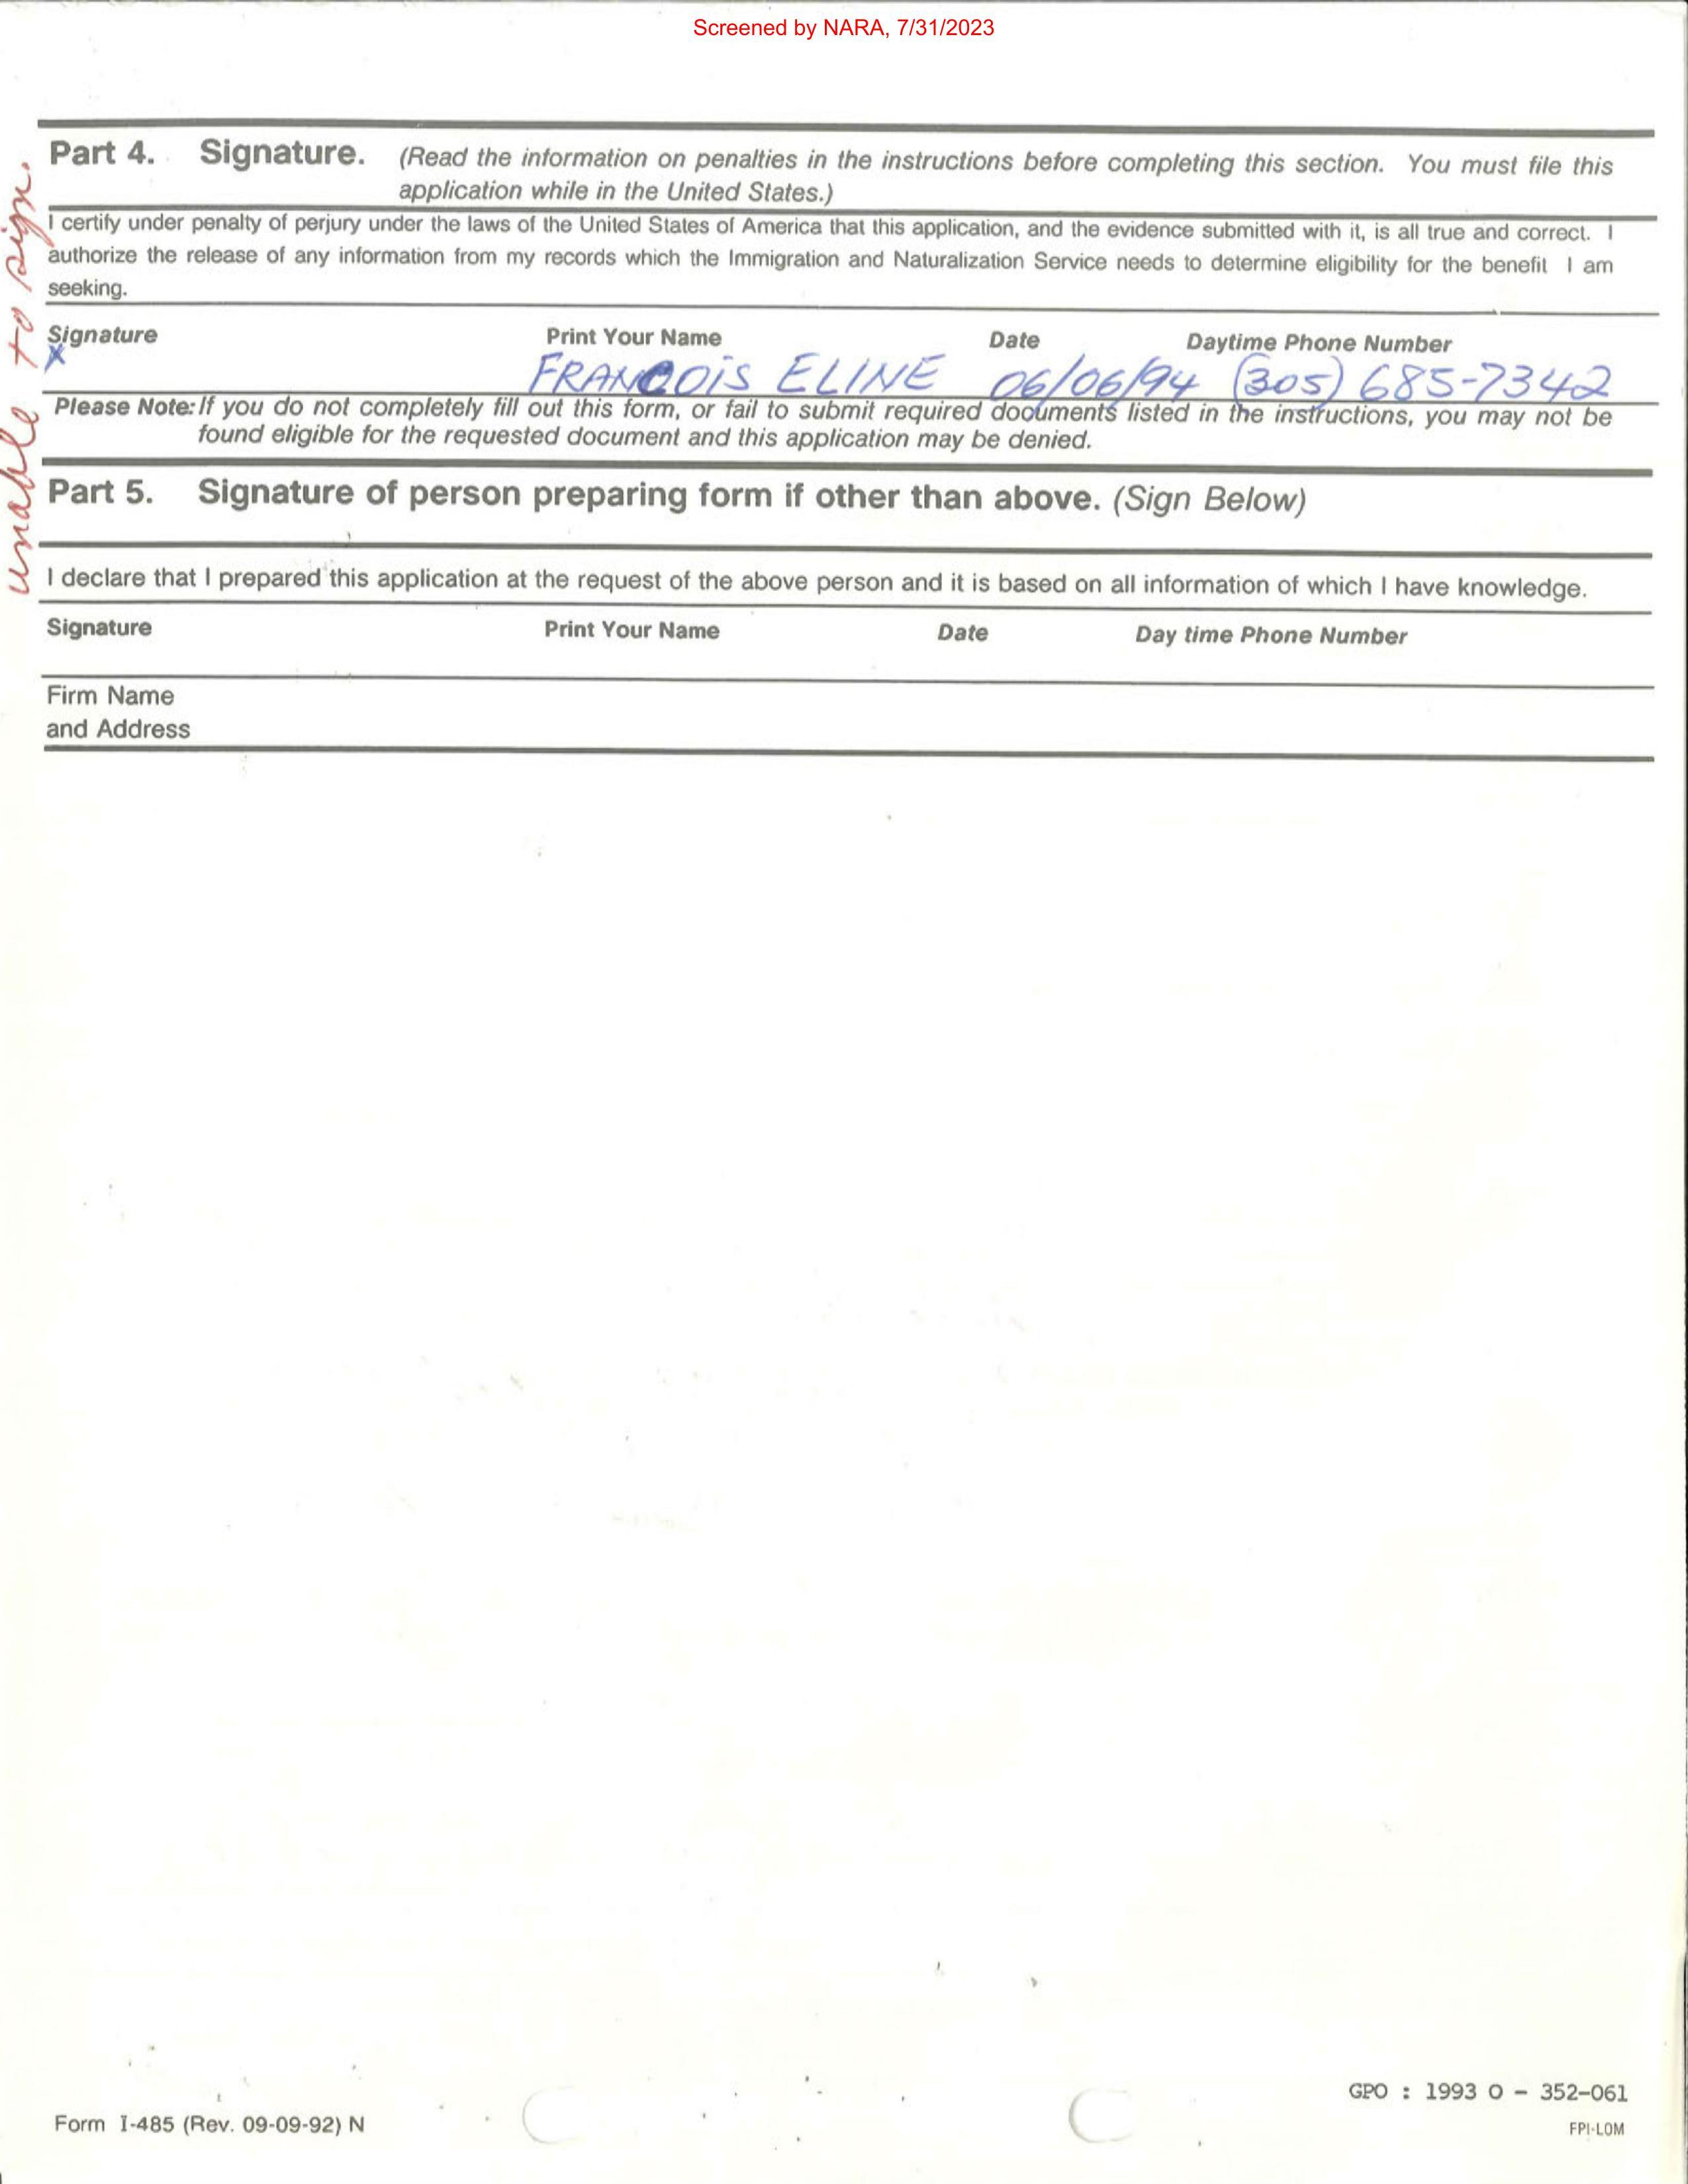 Screened by NARA, 7/31/2023
Part 4. Signature. (Read the information on penalties in the instructions before completing this section. You must file this
application while in the United States.)
I certify under penalty of perjury under the laws of the United States of America that this application, and the evidence submitted with it, is all true and correct. I
authorize the release of any information from my records which the Immigration and Naturalization Service needs to determine eligibility for the benefit I am
seeking.
Signature Print Your Name Date Daytime Phone Number
X FRANCOIS ELINE 06/06/94 (305) 685-7342
Please Note: If you do not completely fill out this form, or fail to submit required documents listed in the instructions, you may not be
found eligible for the requested document and this application may be denied.
unable to sign.
Part 5. Signature of person preparing form if other than above. (Sign Below)
I declare that I prepared this application at the request of the above person and it is based on all information of which I have knowledge.
Signature Print Your Name Date Day time Phone Number
Firm Name
and Address
GPO : 1993 O - 352-061
Form I-485 (Rev. 09-09-92) N
FPI-LOM